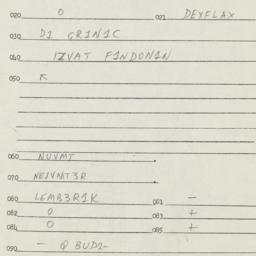 020 0 021 DEXFLAX
030 D1 GR1N1C
040 IZVAT F1ND0N1N
050 K
060 NUVMT
070 NEJVMT3R
080 LEMB3R1K 081 -
082 0 083 +
084 0 085 +
090 - Q BUD2-